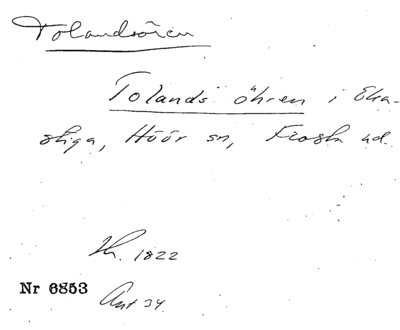 Tolandsören
Tolands öhren i Eka-
stiga, Höör sn, Frosta hd.
Kr. 1822
Nr 6853
Ant 34.